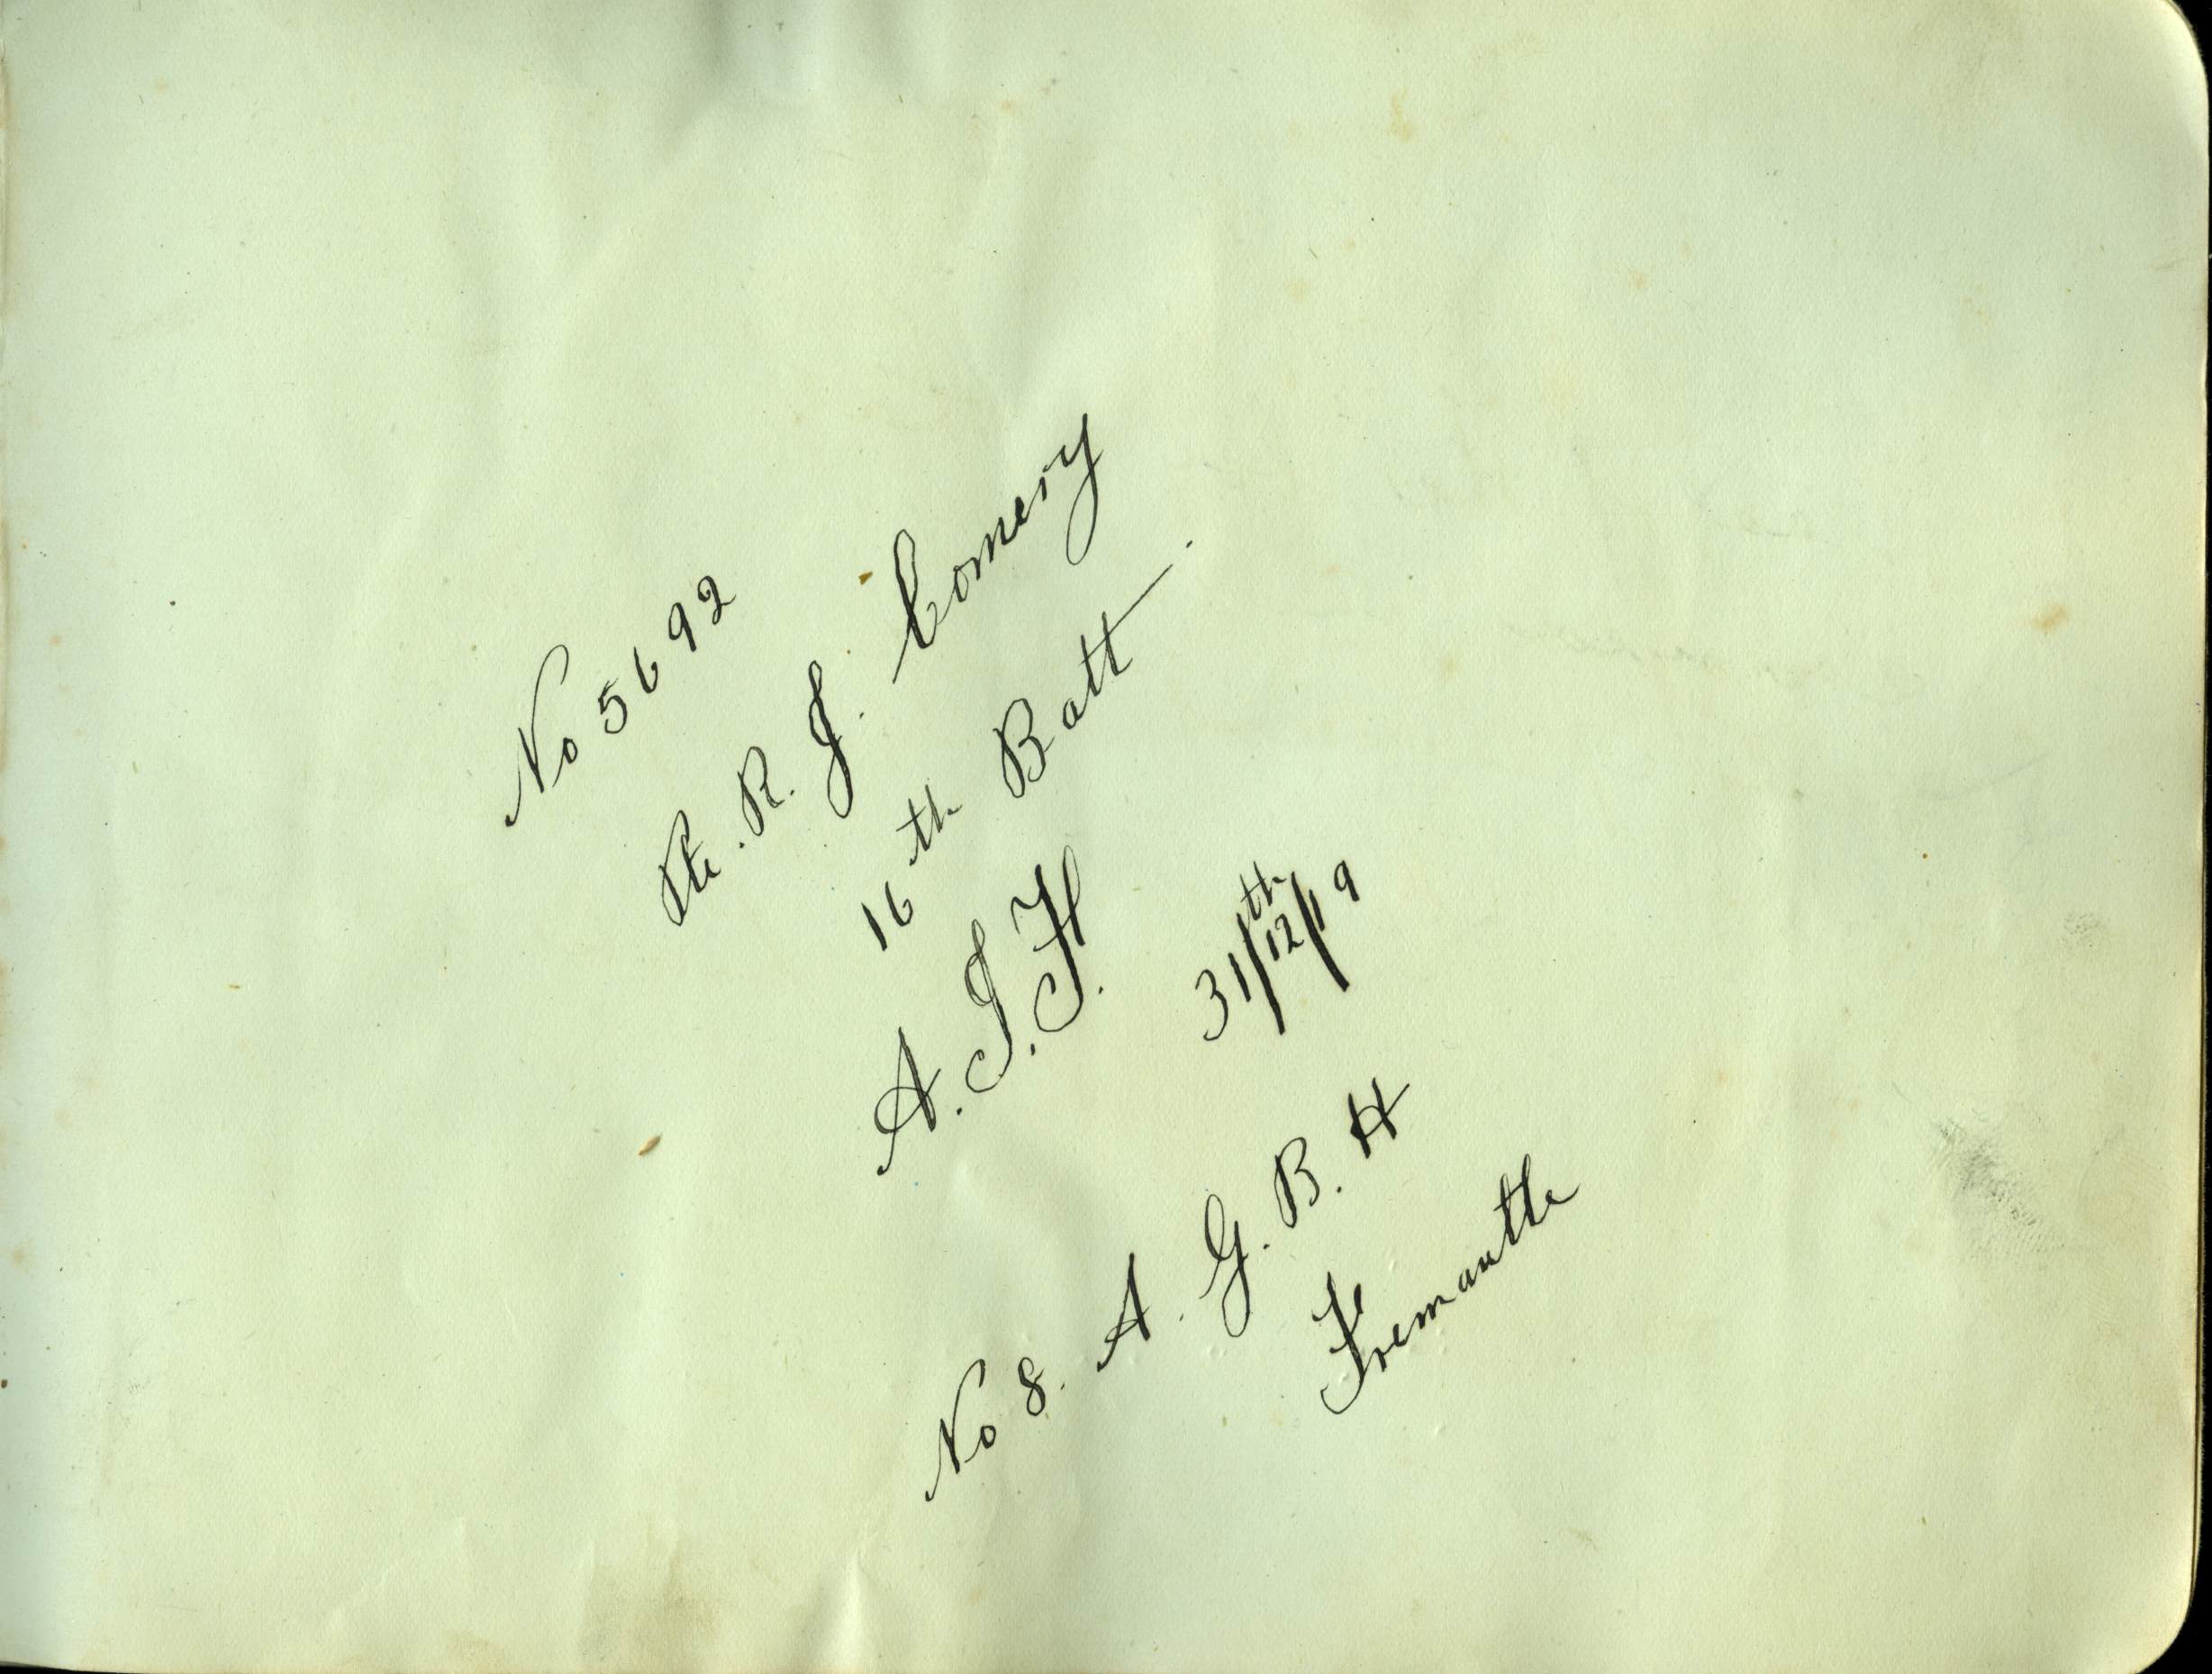 No 5692
Pte. R. J. Comery
16th Batt.
A. I. F.
31/12th/19
No 8. A. G. B. H
Fremantle